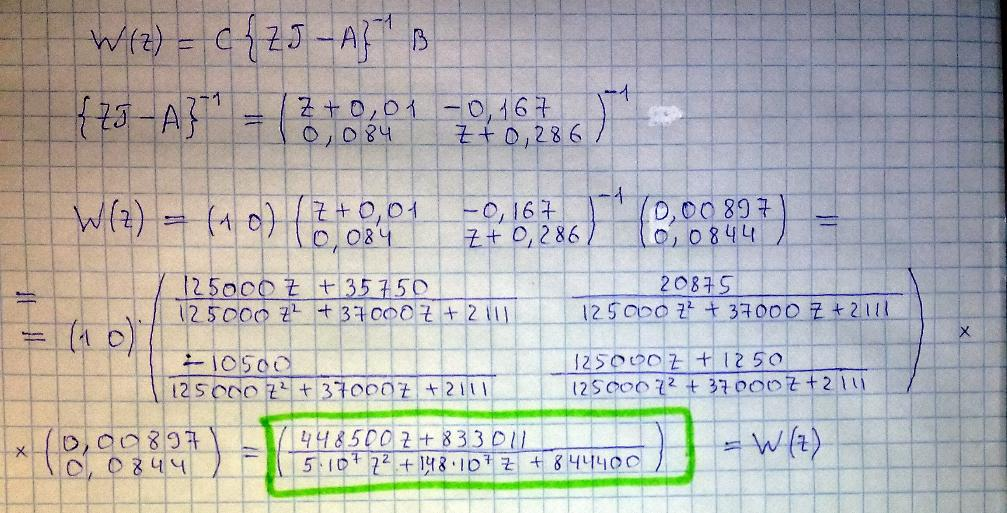 W(z) = C{ZJ - A}⁻¹ B
{ZJ - A}⁻¹ = (z + 0,01 -0,167
0,084 z + 0,286)⁻¹
W(z) = (1 0) (z + 0,01 -0,167
0,084 z + 0,286)⁻¹ (0,00897
0,0844) =
=
= (1 0)· (125000 z + 35750 / 125000 z² + 37000 z + 2111 20875 / 125000 z² + 37000 z + 2111
-10500 / 125000 z² + 37000 z + 2111 125000 z + 1250 / 125000 z² + 37000 z + 2111) ×
× (0,00897
0,0844) = (448500 z + 833011 / 5·10⁷ z² + 1,48·10⁷ z + 844400) = W(z)